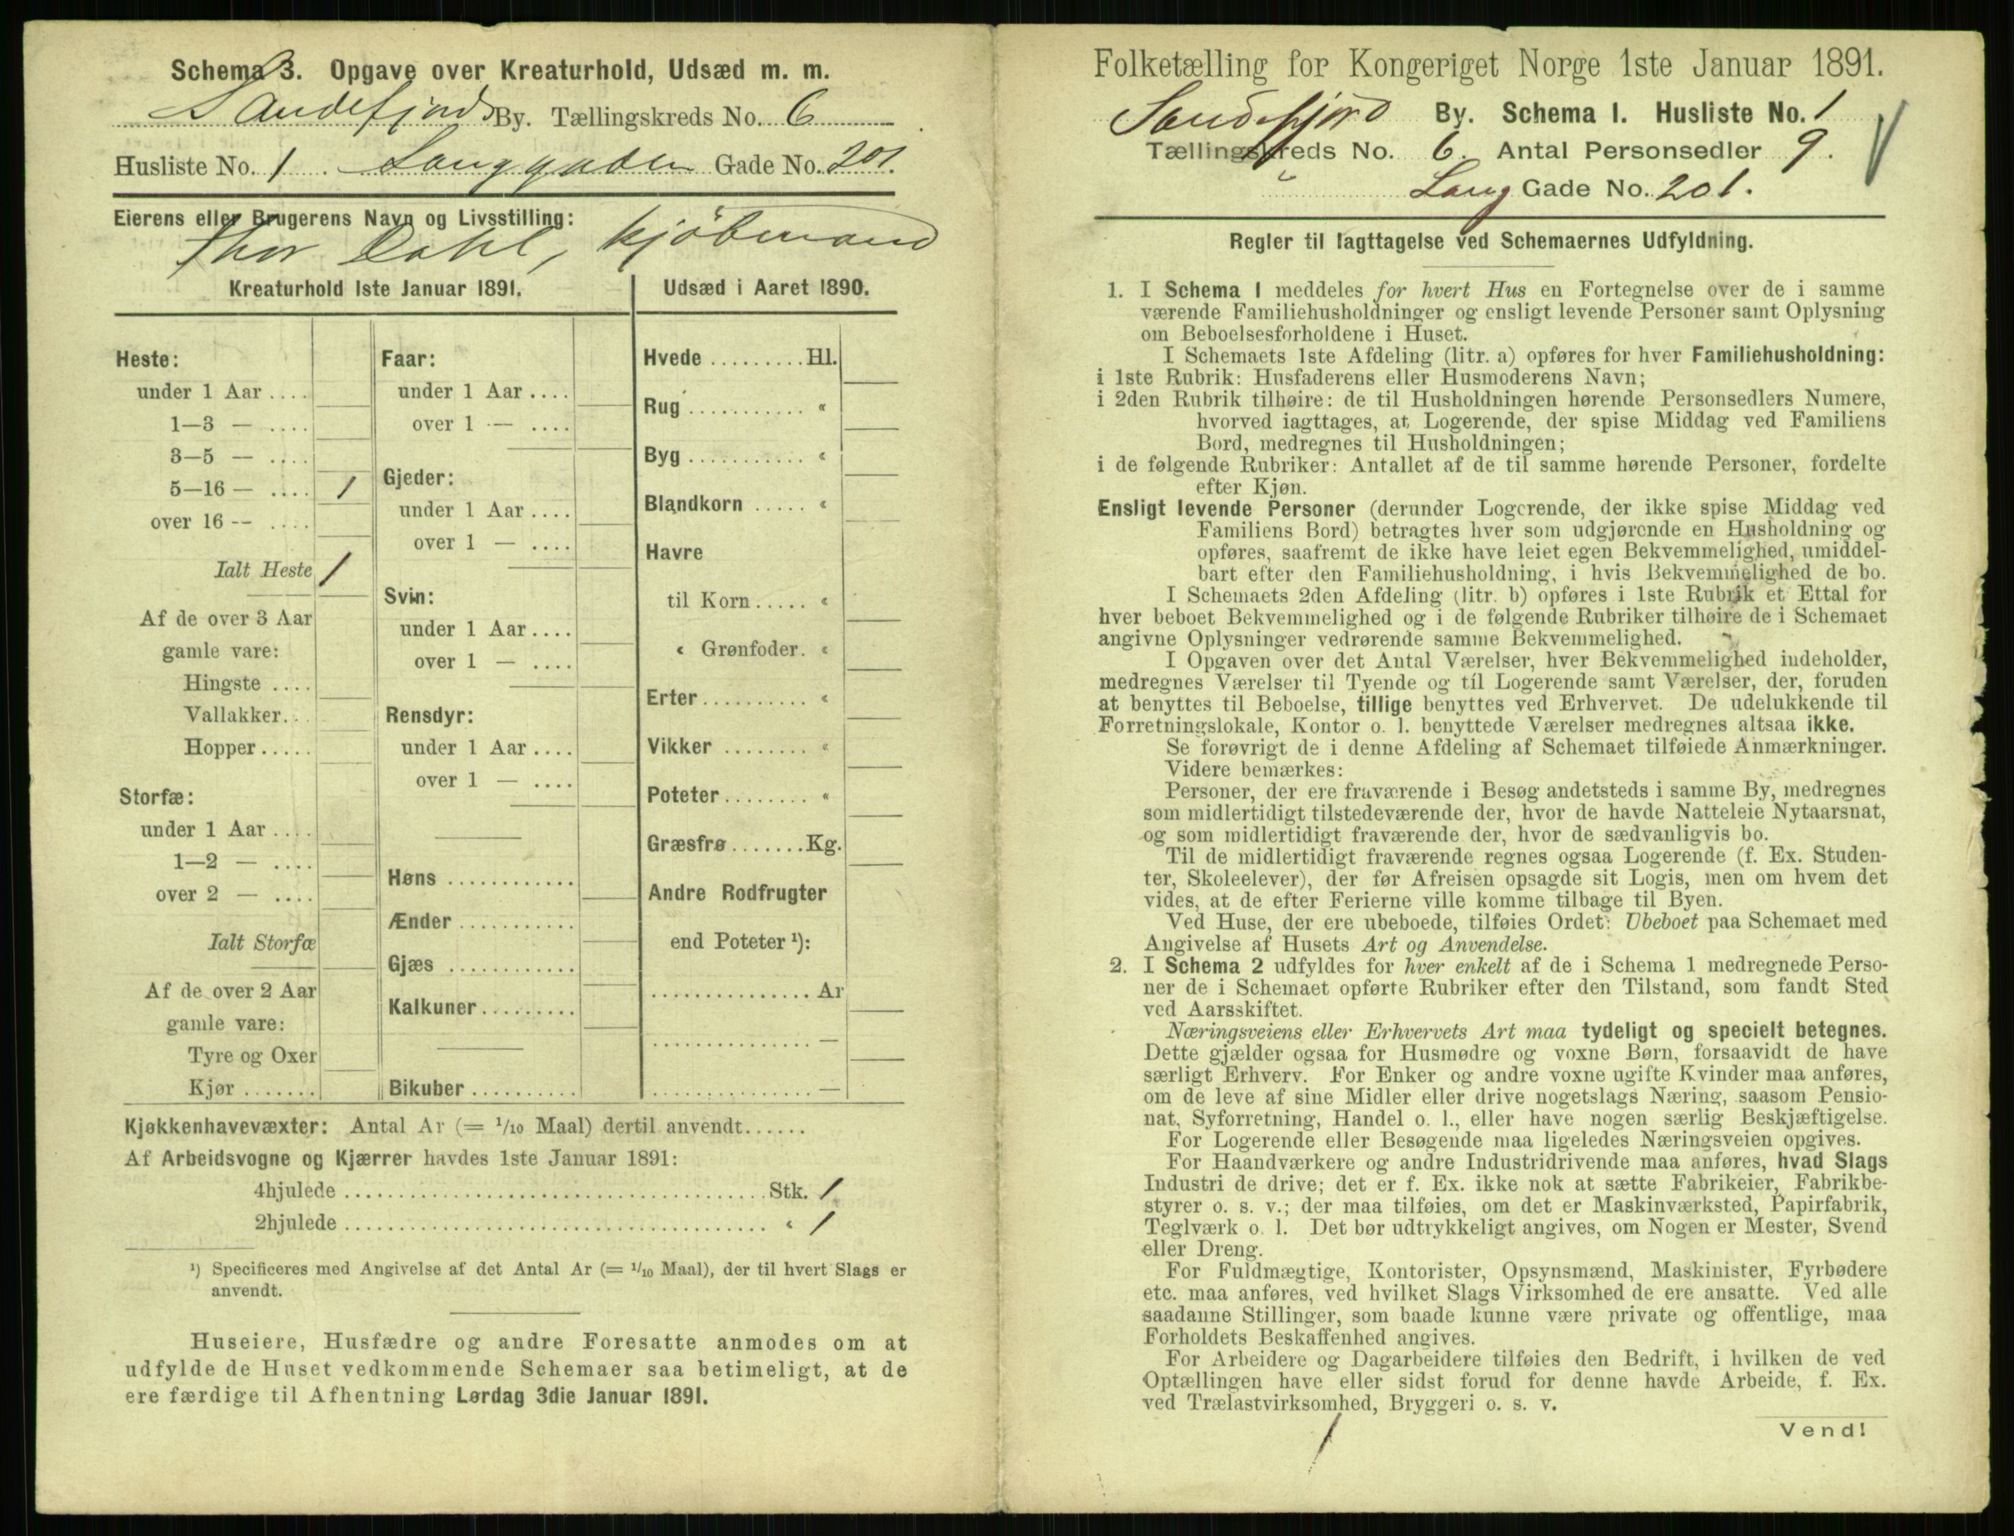 Schema 3. Opgave over Kreaturhold, Udsæd m. m.
Sandefjords By. Tællingskreds No. 6
Husliste No. 1. Langgaden Gade No. 201.
Eierens eller Brugerens Navn og Livsstilling:
Thor Dahl, Kjøbmand
Kreaturhold 1ste Januar 1891.
Heste:
under 1 Aar ....
1—3 — ....
3—5 — ....
5—16 — .... 1
over 16 — ....
Ialt Heste 1
Af de over 3 Aar
gamle vare:
Hingste ....
Vallakker...
Hopper.....
Storfæ:
under 1 Aar ....
1—2 — ....
over 2 — ....
Ialt Storfæ
Af de over 2 Aar
gamle vare:
Tyre og Oxer
Kjør .......
Faar:
under 1 Aar ....
over 1 — ....
Gjeder:
under 1 Aar ....
over 1 — ....
Svin:
under 1 Aar ....
over 1 — ....
Rensdyr:
under 1 Aar ....
over 1 — ....
Høns ............
Ænder ...........
Gjæs ............
Kalkuner.........
Bikuber ..........
Udsæd i Aaret 1890.
Hvede .........Hl.
Rug ........... «
Byg ........... «
Blandkorn ..... «
Havre
til Korn..... «
« Grønfoder. «
Erter.......... «
Vikker ........ «
Poteter........ «
Græsfrø.......Kg.
Andre Rodfrugter
end Poteter ¹):
............... Ar
............... —
............... —
Kjøkkenhavevæxter: Antal Ar (= 1/10 Maal) dertil anvendt......
Af Arbeidsvogne og Kjærrer havdes 1ste Januar 1891:
4hjulede ..................................... Stk. 1
2hjulede ..................................... « 1
¹) Specificeres med Angivelse af det Antal Ar (= 1/10 Maal), der til hvert Slags er
anvendt.
Huseiere, Husfædre og andre Foresatte anmodes om at
udfylde de Huset vedkommende Schemaer saa betimeligt, at de
ere færdige til Afhentning Lørdag 3die Januar 1891.
Folketælling for Kongeriget Norge 1ste Januar 1891.
Sandefjord By. Schema 1. Husliste No. 1
Tællingskreds No. 6. Antal Personsedler 9.
" Lang Gade No. 201.
Regler til Iagttagelse ved Schemaernes Udfyldning.
1. I Schema 1 meddeles for hvert Hus en Fortegnelse over de i samme
værende Familiehusholdninger og ensligt levende Personer samt Oplysning
om Beboelsesforholdene i Huset.
I Schemaets 1ste Afdeling (litr. a) opføres for hver Familiehusholdning:
i 1ste Rubrik: Husfaderens eller Husmoderens Navn;
i 2den Rubrik tilhøire: de til Husholdningen hørende Personsedlers Numere,
hvorved iagttages, at Logerende, der spise Middag ved Familiens
Bord, medregnes til Husholdningen;
i de følgende Rubriker: Antallet af de til samme hørende Personer, fordelte
efter Kjøn.
Ensligt levende Personer (derunder Logerende, der ikke spise Middag ved
Familiens Bord) betragtes hver som udgjørende en Husholdning og
opføres, saafremt de ikke have leiet egen Bekvemmelighed, umiddel-
bart efter den Familiehusholdning, i hvis Bekvemmelighed de bo.
I Schemaets 2den Afdeling (litr. b) opføres i 1ste Rubrik et Ettal for
hver beboet Bekvemmelighed og i de følgende Rubriker tilhøire de i Schemaet
angivne Oplysninger vedrørende samme Bekvemmelighed.
I Opgaven over det Antal Værelser, hver Bekvemmelighed indeholder,
medregnes Værelser til Tyende og til Logerende samt Værelser, der, foruden
at benyttes til Beboelse, tillige benyttes ved Erhvervet. De udelukkende til
Forretningslokale, Kontor o. l. benyttede Værelser medregnes altsaa ikke.
Se forøvrigt de i denne Afdeling af Schemaet tilføiede Anmærkninger.
Videre bemærkes:
Personer, der ere fraværende i Besøg andetsteds i samme By, medregnes
som midlertidigt tilstedeværende der, hvor de havde Natteleie Nytaarsnat,
og som midlertidigt fraværende der, hvor de sædvanligvis bo.
Til de midlertidigt fraværende regnes ogsaa Logerende (f. Ex. Studen-
ter, Skoleelever), der før Afreisen opsagde sit Logis, men om hvem det
vides, at de efter Ferierne ville komme tilbage til Byen.
Ved Huse, der ere ubeboede, tilføies Ordet: Ubeboet paa Schemaet med
Angivelse af Husets Art og Anvendelse.
2. I Schema 2 udfyldes for hver enkelt af de i Schema 1 medregnede Perso-
ner de i Schemaet opførte Rubriker efter den Tilstand, som fandt Sted
ved Aarsskiftet.
Næringsveiens eller Erhvervets Art maa tydeligt og specielt betegnes.
Dette gjælder ogsaa for Husmødre og voxne Børn, forsaavidt de have
særligt Erhverv. For Enker og andre voxne ugifte Kvinder maa anføres,
om de leve af sine Midler eller drive nogetslags Næring, saasom Pensio-
nat, Syforretning, Handel o. l., eller have nogen særlig Beskjæftigelse.
For Logerende eller Besøgende maa ligeledes Næringsveien opgives.
For Haandværkere og andre Industridrivende maa anføres, hvad Slags
Industri de drive; det er f. Ex. ikke nok at sætte Fabrikeier, Fabrikbe-
styrer o. s. v.; der maa tilføies, om det er Maskinværksted, Papirfabrik,
Teglværk o. l. Det bør udtrykkeligt angives, om Nogen er Mester, Svend
eller Dreng.
For Fuldmægtige, Kontorister, Opsynsmænd, Maskinister, Fyrbødere
etc. maa anføres, ved hvilket Slags Virksomhed de ere ansatte. Ved alle
saadanne Stillinger, som baade kunne være private og offentlige, maa
Forholdets Beskaffenhed angives.
For Arbeidere og Dagarbeidere tilføies den Bedrift, i hvilken de ved
Optællingen have eller sidst forud for denne havde Arbeide, f. Ex.
ved Trælastvirksomhed, Bryggeri o. s. v.
1
Vend!